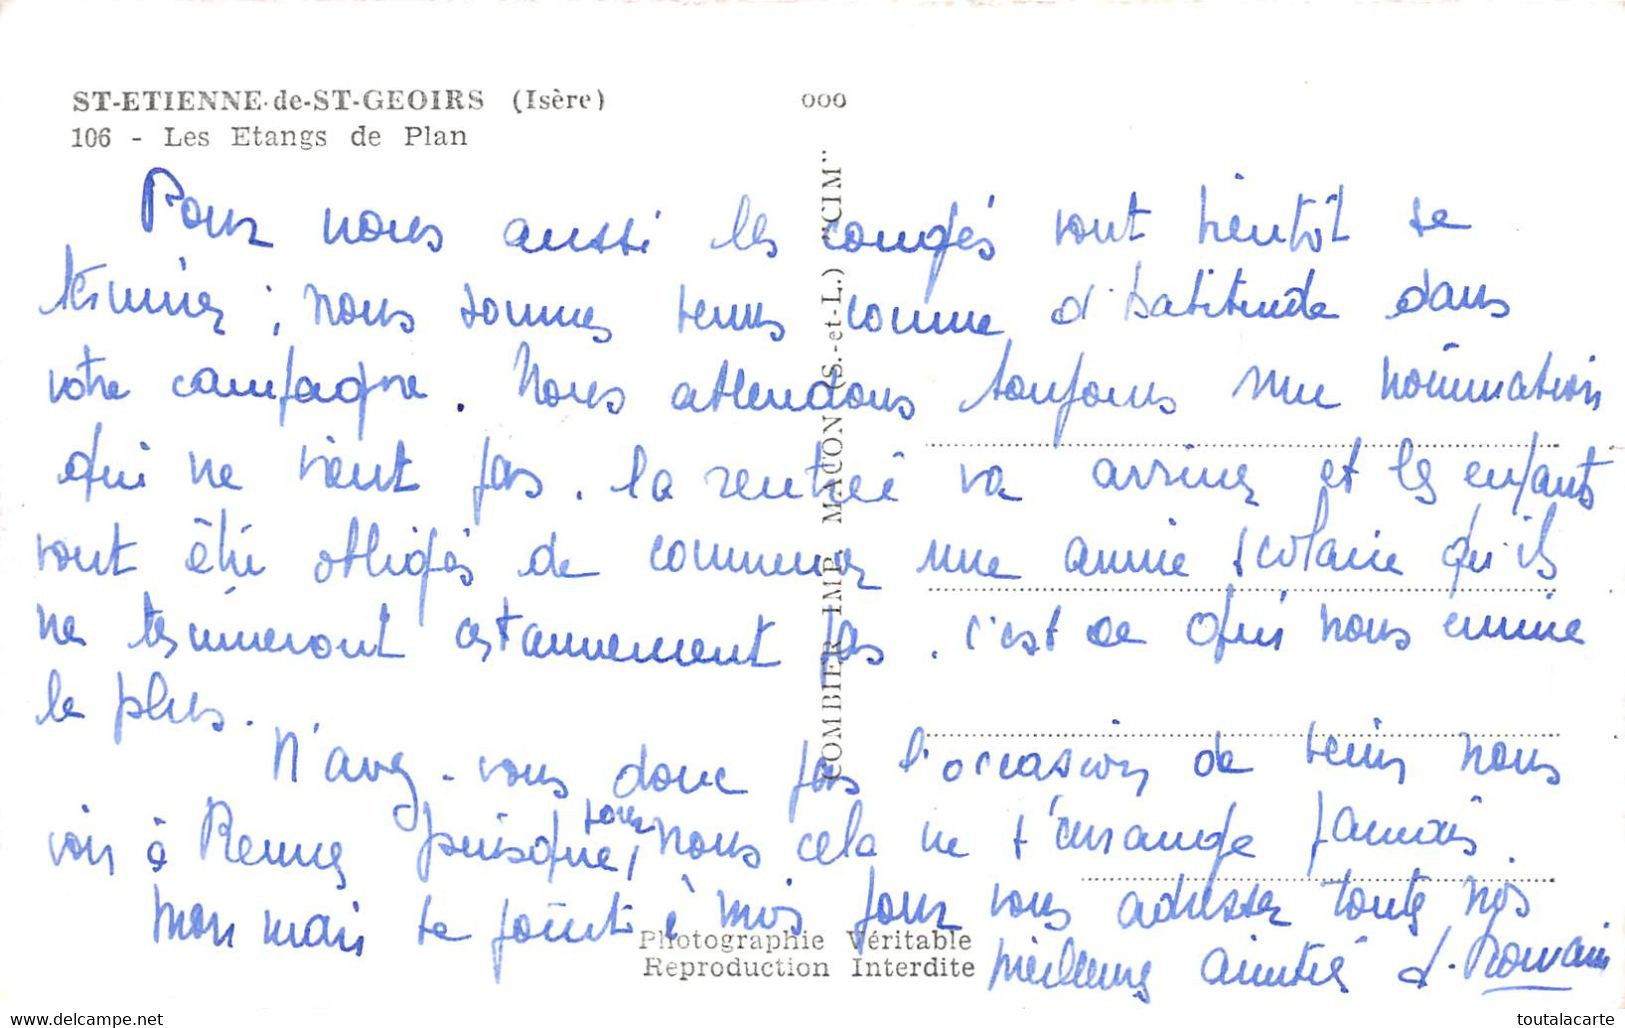 ST-ETIENNE-de-ST-GEOIRS (Isère)
106 - Les Etangs de Plan
ooo
COMBIER IMP. MACON (S.-et-L.) "CIM"
Pour nous aussi les congés vont bientôt se
terminer ; nous sommes venus comme d'habitude dans
votre campagne. Nous attendons toujours une nomination
qui ne vient pas. la rentrée va arriver et les enfants
vont être obligés de commencer une année scolaire qu'ils
ne termineront certainement pas. c'est ce qui nous ennuie
le plus.
N'avez-vous donc pas l'occasion de venir nous
voir à Rennes puisque, pour nous cela ne s'arrange jamais.
Mon mari se joint à moi pour vous adresser toutes nos
meilleures amitiés
Photographie Véritable
Reproduction Interdite
www.delcampe.net
toutalacarte